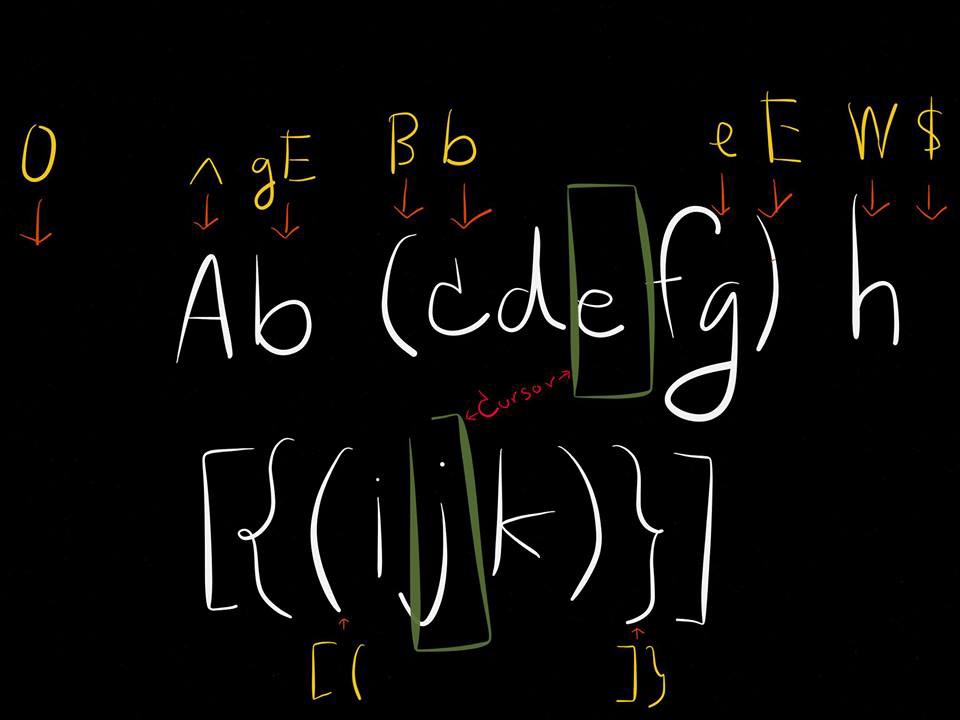 0 ^ gE B b e E W $
Ab (cdefg) h
cursor
[{(ijk)}]
[( ]}